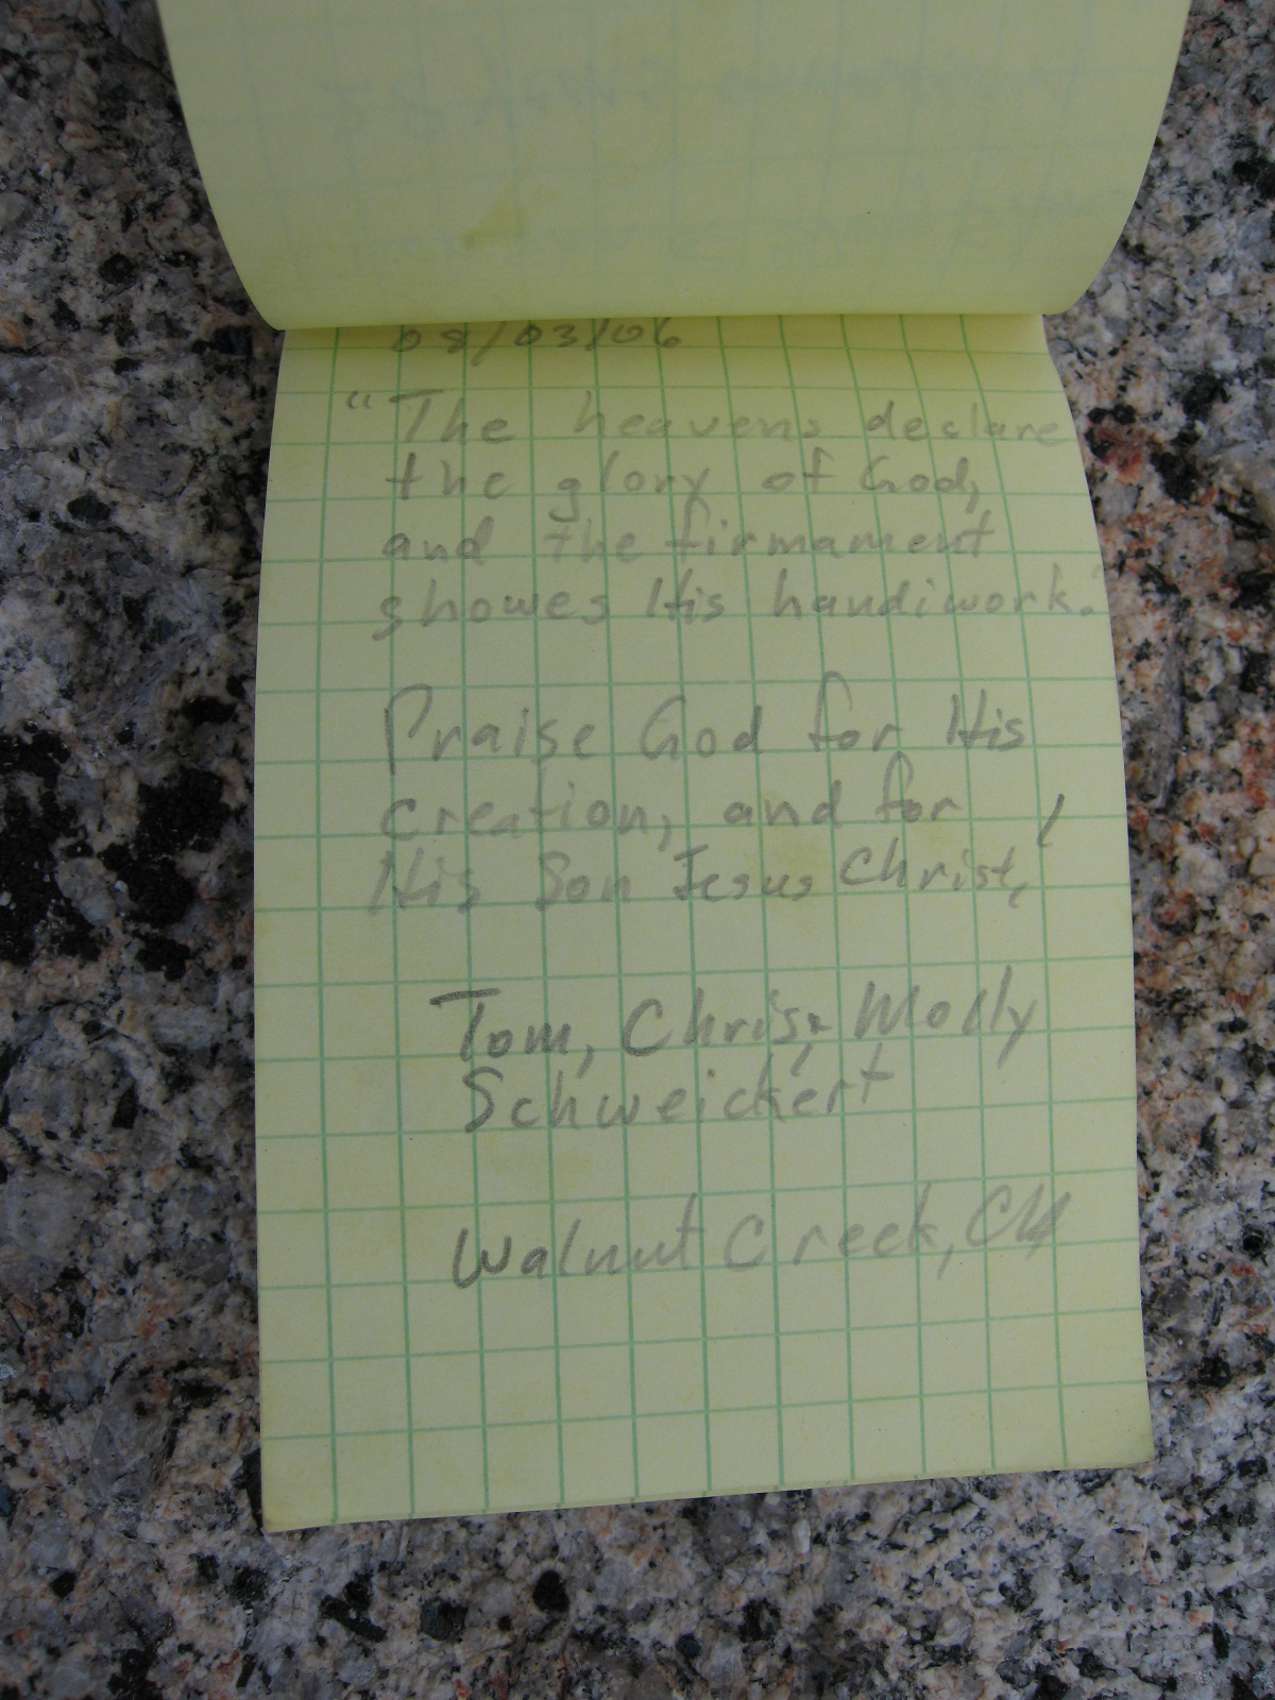 08/03/06
"The heavens declare
the glory of God,
and the firmament
showes His handiwork."
Praise God for His
creation, and for
His Son Jesus Christ,
Tom, Chris, Molly
Schweickert
Walnut Creek, CA